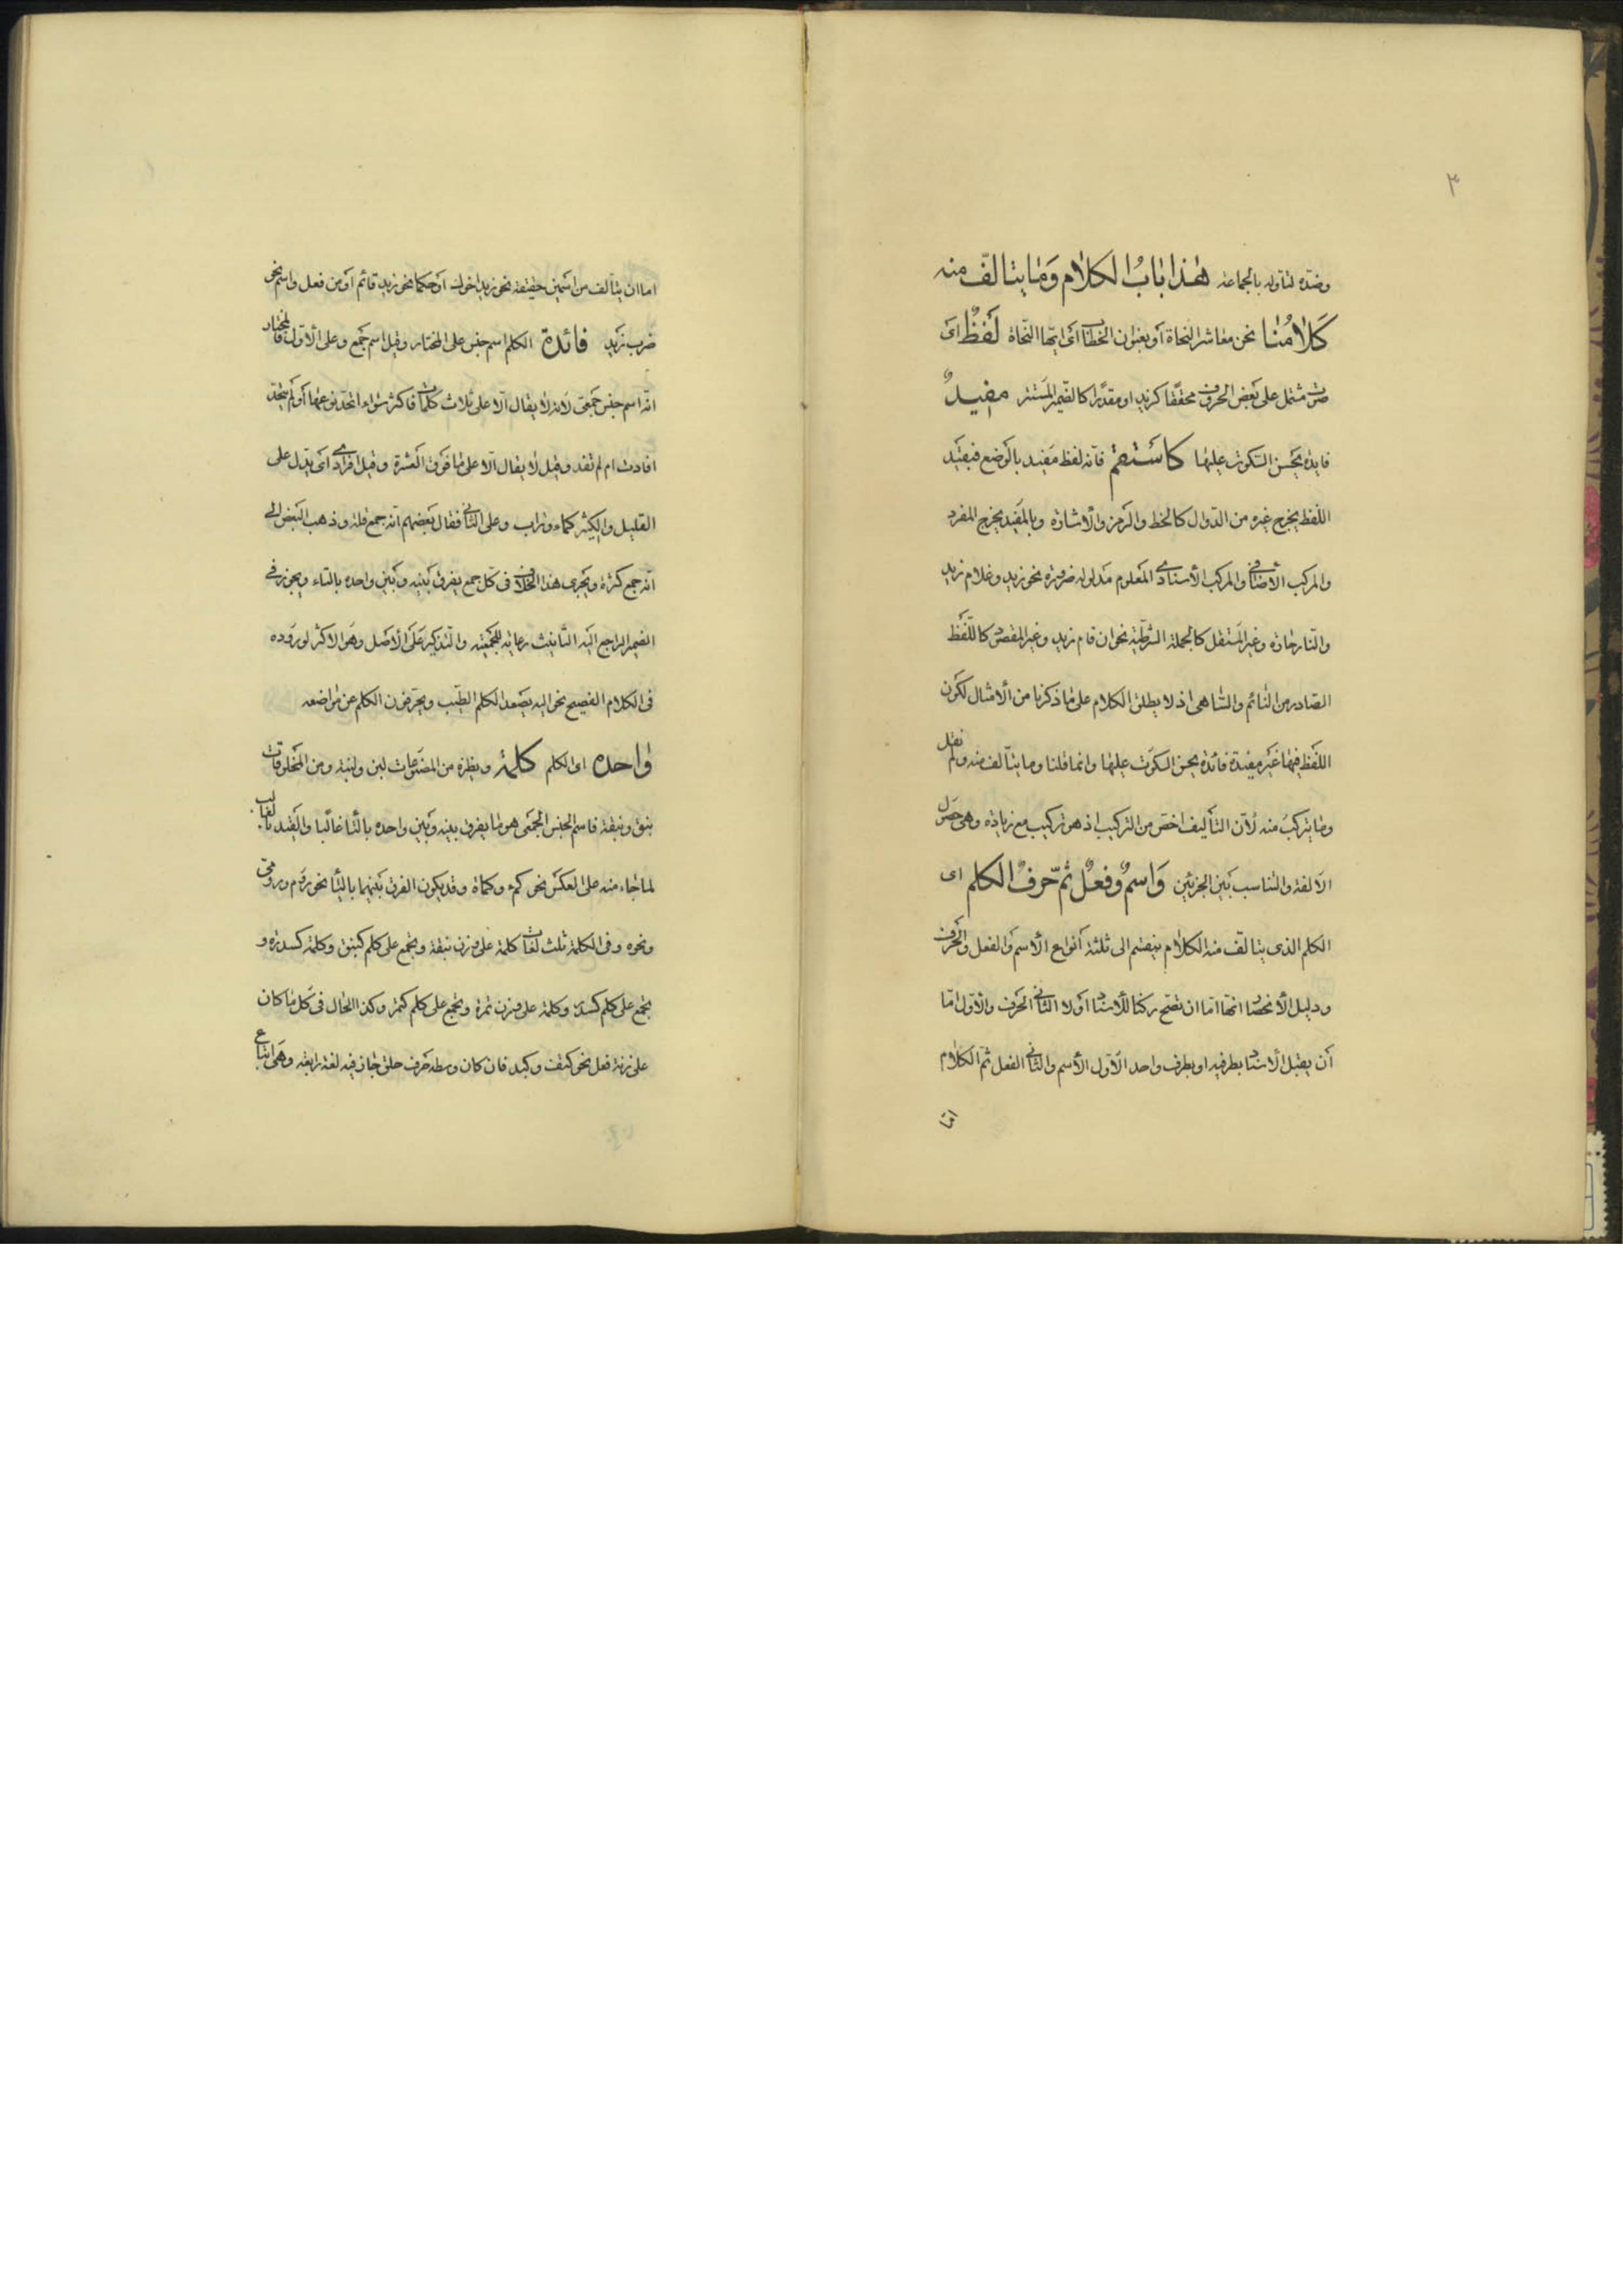 ٣
وضدّه لتاوله بالجماعة هٰذا بَابُ الكلام وَمٰا يتالف منه
كَلٰامُنٰا نحن معٰاشر النحاة أو بعنوان الخطاب أى ايّها النّحاة لَفظٌ اى
صوت مشتمل على بَعض الحروف محقّقا كزيد او مقدّرا كالضّمير المستتر مفيدٌ
فايدة يحسن السّكوت عليها كاستقم فانّه لفظ مفيد بالوضع فبقيد
اللّفظ يخرج غيره من الدّوال كالخط والرّمز والأشارة وبالمفيد يخرج المفرد
والمركب الأضافى والمركب الأسنادى المعلوم مدلوله ضرورة نحو زيد وغلام زيد
والنّار حٰارة وغير المستقل كالجملة الشرطيّة نحو ان قام زيد وغير المقصود كاللّفظ
الصّادر من النّائم والسّاهى اذ لا يطلق الكلام على مٰا ذكرنا من الأمثال لكون
اللّفظ فيها غير مفيدة فائدة يحسن السّكوت عليها وانما قلنا وما يتالف منه ولم نقل
ومٰا يتركب منه لأن التأليف اخصّ من التركيب اذ هو تركيب مع زيادة وهى حصول
الالفة والتناسب بَين الجزئين وَاسمٌ وفعلٌ ثمّ حرفٌ الكلم اى
الكلم الذى يتالف منه الكلام ينقسم الى ثلثة أنواع الأسم والفعل والحرف
ودليل الأنحصار انّها امّا ان تصّح ركنا للأسناد أو لا الثانى الحرف والأوّل امّا
أن يقبل الأسناد بطرفيه او بطرف واحد الأوّل الأسم والثانى الفعل ثمّ الكلام
امّا
اما ان يتالف من اسمين حقيقة نحو زيد اخوك او حكما نحو زيد قائم أو من فعل واسم نحو
ضرب زيد فائدة الكلم اسم جنس على المختار وقيل اسم جمع وعلى الأوّل فالمختار
انّه اسم جنس جمعى لانّه لا يقال الّا على ثلاث كلمات فاكثر سواء اتحد نوعها أو لم يتحد
افادت ام لم تفد وقيل لا يقال الّا على مٰا فوق العشرة وقيل افرادى اى يدل على
القليل والكثير كماء وتراب وعلى الثانى فقال بعضهم أنّه جمع قلّة وذهب البعض الى
انّه جمع كثرة ويجرى هذا الخلاف فى كل جمع يفرق بَينه وبَين واحده بالتاء ويجوز فى
الضمير الراجع اليه التّأنيث رعاية للجمعيّة والتذكير عَلى الأصل وهو الاكثر لوروده
فى الكلام الفصيح نحو اليه يصعد الكلم الطيّب ويحرّفون الكلم عن مواضعه
وٰاحده اى الكلم كلمة ونظيره من المصنوعات لبن ولبنة ومن المخلوقات
نبق ونبقة فاسم الجنس الجمعى هو مٰا يفرق بينه وبين واحده بالتّاء غالبًا والقيد بالغالب
لما جٰاء منه على العكس نحو كمء وكماة وقد يكون الفرق بَينهما باليٰاء نحو روم ورومى
ونحوه وفى الكلمة ثلث لغات كلمة على وزن نبقة ويجمع على كلم كنبق وكلمة كسدرة و
يجمع على كلم كسدر وكلمة على وزن تمرة ويجمع على كلم كتمر وكذا الحٰال فى كل مٰا كان
على زنة فعل نحو كتف وكبد فان كان وسطه حرف حلق جٰاز فيه لغة رابعة وهى اتباع